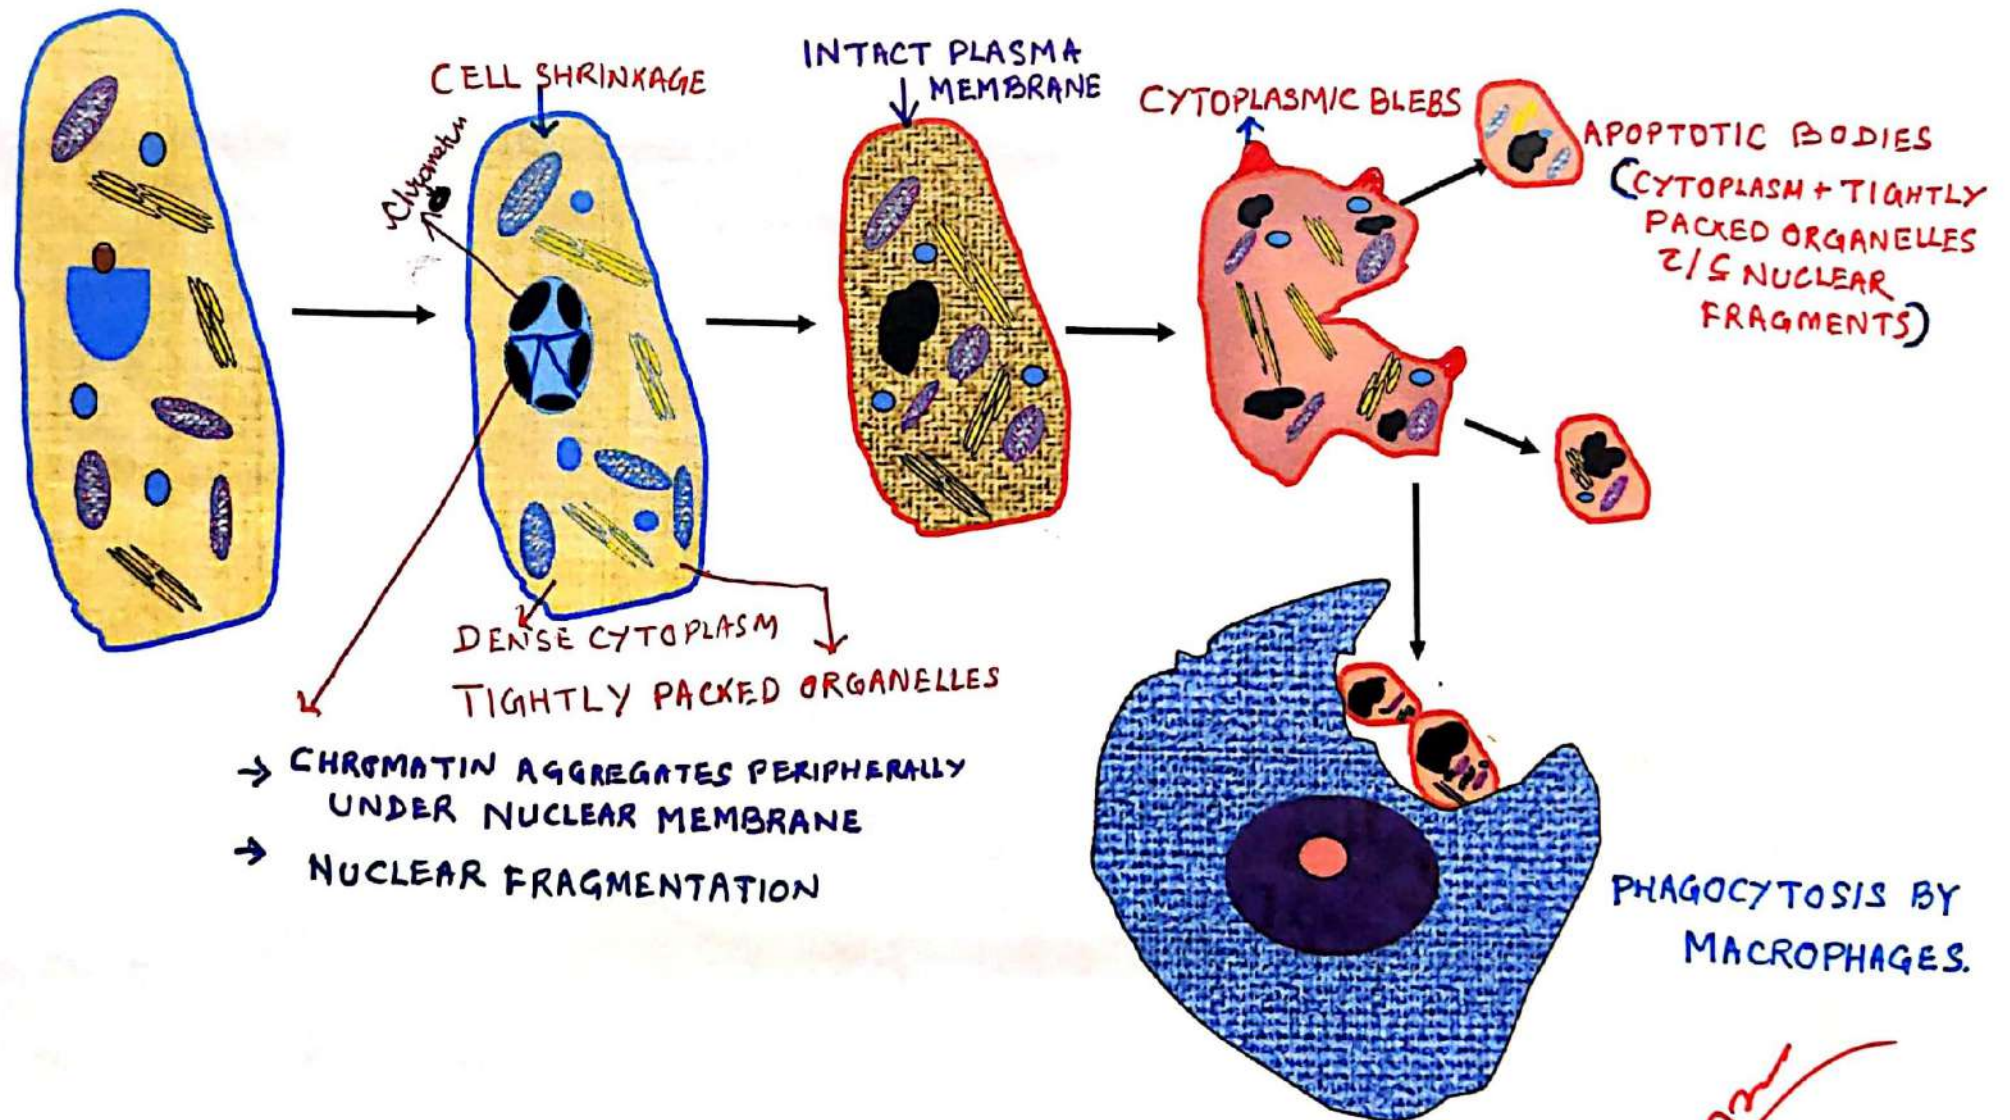 CELL SHRINKAGE
Chromatin
INTACT PLASMA
MEMBRANE
CYTOPLASMIC BLEBS
APOPTOTIC BODIES
(CYTOPLASM + TIGHTLY
PACKED ORGANELLES
NUCLEAR
FRAGMENTS)
DENSE CYTOPLASM
TIGHTLY PACKED ORGANELLES
→ CHROMATIN AGGREGATES PERIPHERALLY
UNDER NUCLEAR MEMBRANE
→ NUCLEAR FRAGMENTATION
PHAGOCYTOSIS BY
MACROPHAGES.